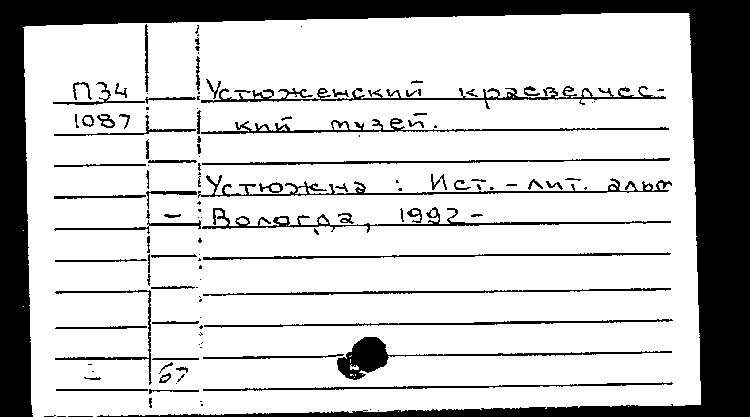 П34 Устюженский краеведчес-
1087 кий музей.
Устюжна : Ист. - лит. альм
- Вологда, 1992 -
- 67